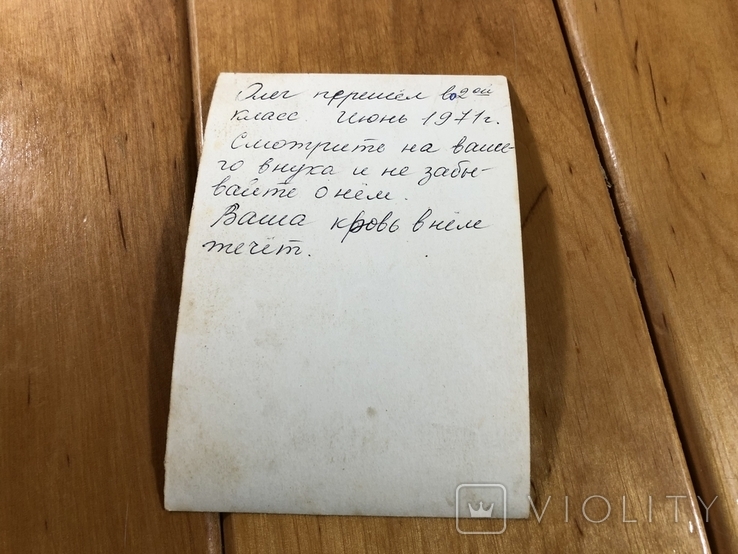 Олег перешёл во 2ой
класс. Июнь 1971г.
Смотрите на ваше-
го внука и не забы-
вайте о нём.
Ваша кровь в нём
течёт.
VIOLITY